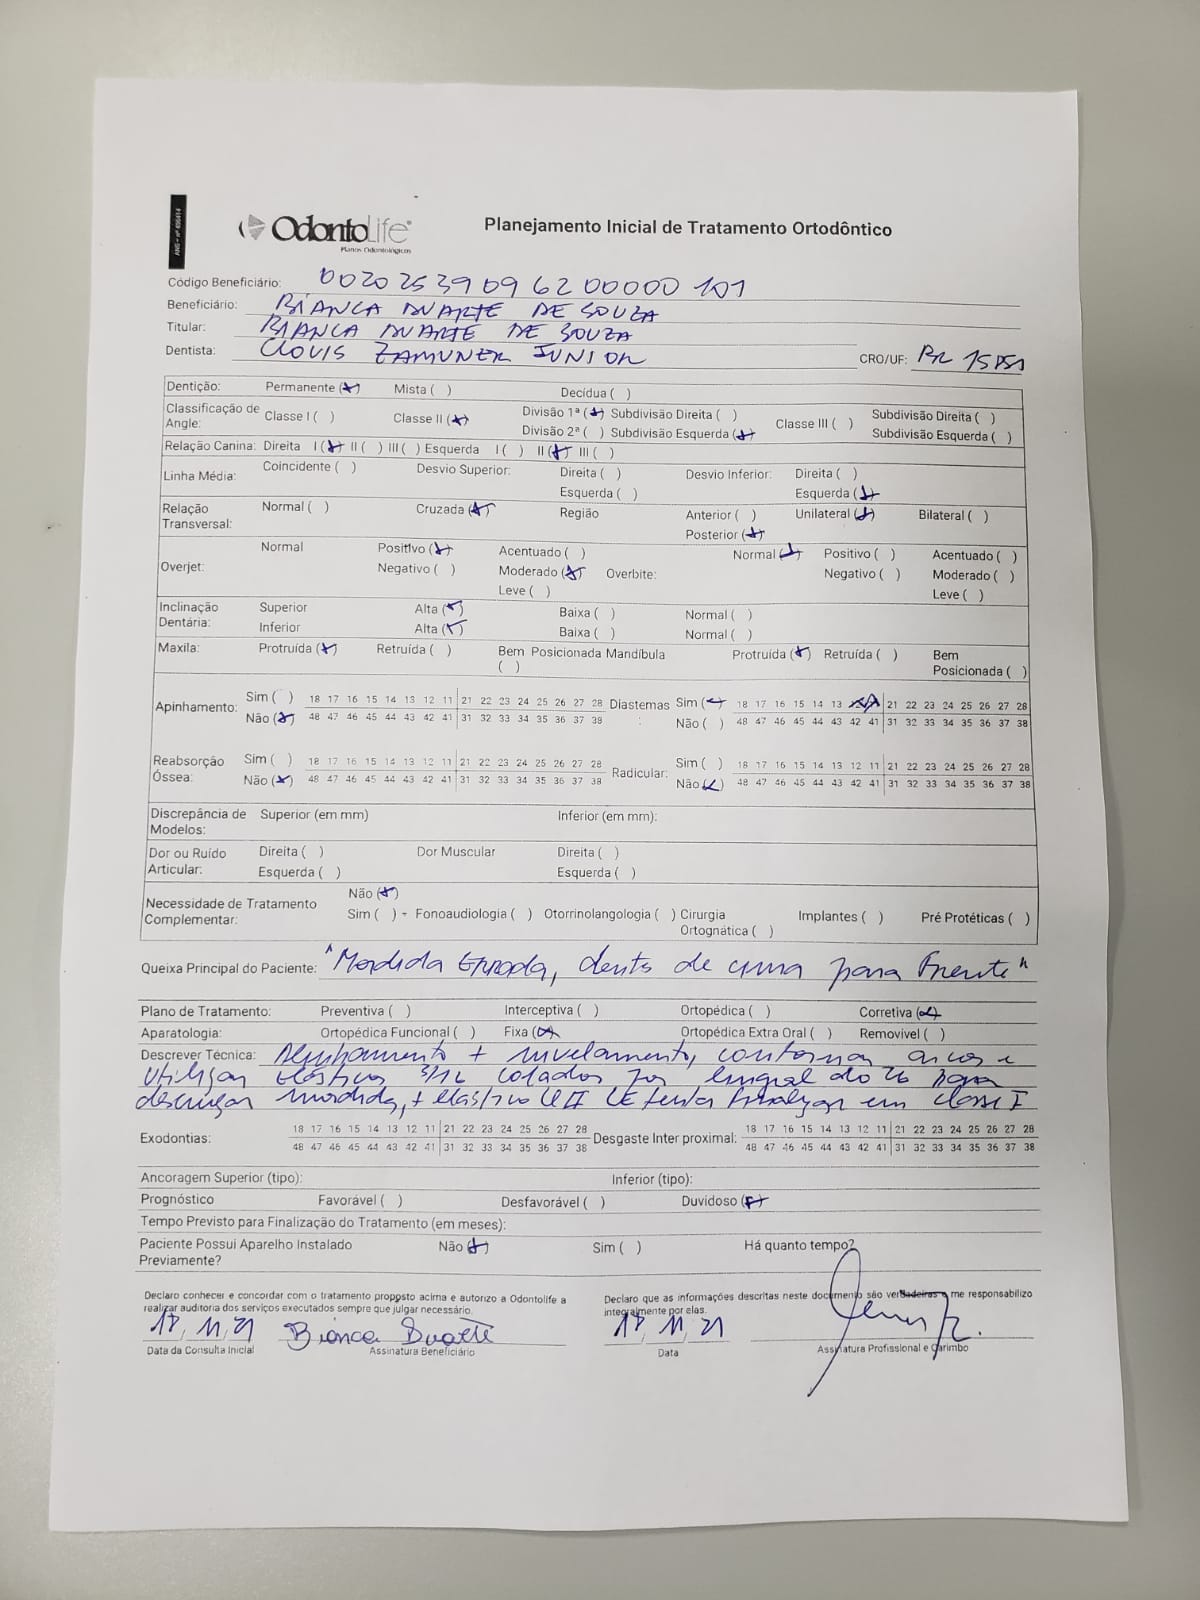 ANS - nº 406414
OdontoLife®
Planos Odontológicos
Planejamento Inicial de Tratamento Ortodôntico
Código Beneficiário: 00202539096200000101
Beneficiário: BIANCA DUARTE DE SOUZA
Titular: BIANCA DUARTE DE SOUZA
Dentista: CLOVIS ZAMUNER JUNIOR CRO/UF: PR
Dentição: Permanente (x) Mista ( ) Decídua ( )
Classificação de Angle: Classe I ( ) Classe II (x) Divisão 1ª (x) Subdivisão Direita ( ) Classe III ( ) Subdivisão Direita ( )
Divisão 2ª ( ) Subdivisão Esquerda (x) Subdivisão Esquerda ( )
Relação Canina: Direita I (x) II ( ) III ( ) Esquerda I ( ) II (x) III ( )
Linha Média: Coincidente ( ) Desvio Superior: Direita ( ) Desvio Inferior: Direita ( )
Esquerda ( ) Esquerda (x)
Relação Transversal: Normal ( ) Cruzada (x) Região Anterior ( ) Unilateral (x) Bilateral ( )
Posterior (x)
Overjet: Normal Positivo (x) Acentuado ( ) Normal (x) Positivo ( ) Acentuado ( )
Negativo ( ) Moderado (x) Overbite: Negativo ( ) Moderado ( )
Leve ( ) Leve ( )
Inclinação Dentária: Superior Alta (x) Baixa ( ) Normal ( )
Inferior Alta (x) Baixa ( ) Normal ( )
Maxila: Protruída (x) Retruída ( ) Bem Posicionada ( ) Mandíbula Protruída (x) Retruída ( ) Bem Posicionada ( )
Apinhamento: Sim ( ) 18 17 16 15 14 13 12 11 21 22 23 24 25 26 27 28 Diastemas: Sim (x) 18 17 16 15 14 13 21 22 23 24 25 26 27 28
Não (x) 48 47 46 45 44 43 42 41 31 32 33 34 35 36 37 38 Não ( ) 48 47 46 45 44 43 42 41 31 32 33 34 35 36 37 38
Reabsorção Óssea: Sim ( ) 18 17 16 15 14 13 12 11 21 22 23 24 25 26 27 28 Radicular: Sim ( ) 18 17 16 15 14 13 12 11 21 22 23 24 25 26 27 28
Não (x) 48 47 46 45 44 43 42 41 31 32 33 34 35 36 37 38 Não (x) 48 47 46 45 44 43 42 41 31 32 33 34 35 36 37 38
Discrepância de Modelos: Superior (em mm) Inferior (em mm):
Dor ou Ruído Articular: Direita ( ) Dor Muscular Direita ( )
Esquerda ( ) Esquerda ( )
Necessidade de Tratamento Complementar: Não (x)
Sim ( ) - Fonoaudiologia ( ) Otorrinolangologia ( ) Cirurgia Ortognática ( ) Implantes ( ) Pré Protéticas ( )
Queixa Principal do Paciente: "Mordida Errada, dento de cima para Frente"
Plano de Tratamento: Preventiva ( ) Interceptiva ( ) Ortopédica ( ) Corretiva (x)
Aparatologia: Ortopédica Funcional ( ) Fixa (x) Ortopédica Extra Oral ( ) Removivel ( )
Descrever Técnica: Alinhamento + nivelamento, contornar arcos e
Utilizar Elástico 3/16 colados por lingual do 26 para
descruzar mordida, + elástico CL II LE tentar finalizar em classe I
Exodontias: 18 17 16 15 14 13 12 11 21 22 23 24 25 26 27 28 Desgaste Inter proximal: 18 17 16 15 14 13 12 11 21 22 23 24 25 26 27 28
48 47 46 45 44 43 42 41 31 32 33 34 35 36 37 38 48 47 46 45 44 43 42 41 31 32 33 34 35 36 37 38
Ancoragem Superior (tipo): Inferior (tipo):
Prognóstico Favorável ( ) Desfavorável ( ) Duvidoso (x)
Tempo Previsto para Finalização do Tratamento (em meses):
Paciente Possui Aparelho Instalado Previamente? Não (x) Sim ( ) Há quanto tempo?
Declaro conhecer e concordar com o tratamento proposto acima e autorizo a Odontolife a
realizar auditoria dos serviços executados sempre que julgar necessário.
Declaro que as informações descritas neste documento são verdadeiras e me responsabilizo
integralmente por elas.
18, 11, 21 Bianca Duarte 18, 11, 21
Data da Consulta Inicial Assinatura Beneficiário Data Assinatura Profissional e Carimbo